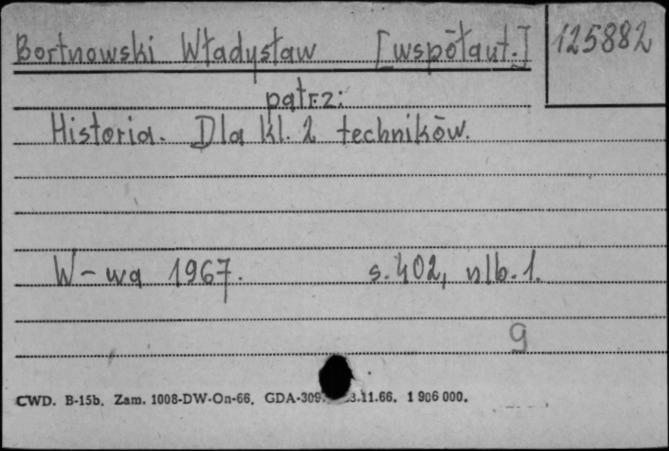 Bortnowski Władysław [współaut.] 125882
patrz:
Historia. Dla kl. 2 techników.
W-wa 1967. s. 402, nlb. 1.
9
CWD. B-15b. Zam. 1008-DW-On-66. GDA-309. 3.11.66. 1 906 000.